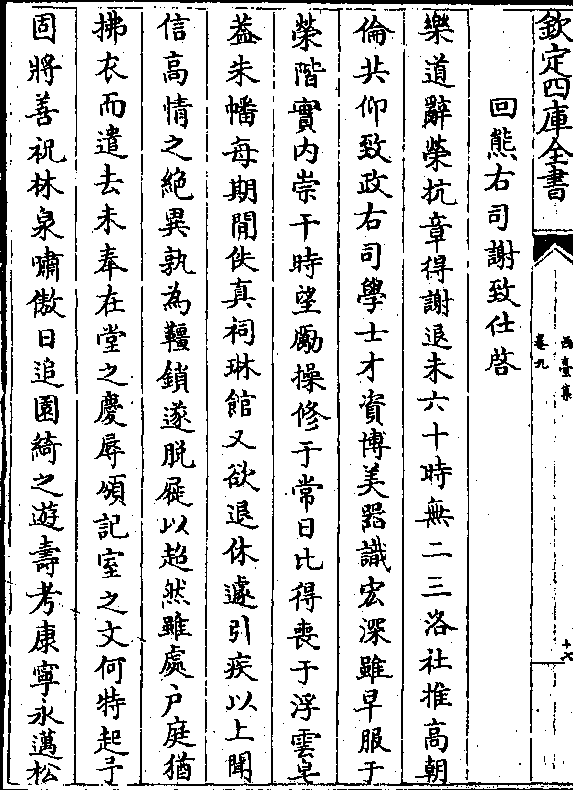 欽定四庫全書
西臺集
卷九
十七
回熊右司謝致仕啓
樂道辭榮抗章得謝退未六十時無二三洛社推高朝
倫共仰致政右司學士才資博美器識宏深雖早服于
榮階實内崇于時望勵操修于常日比得喪于浮雲皂
葢朱幡每期閒佚真祠琳館又欲退休遽引疾以上聞
信高情之絶異孰為韁鎖遂脱屣以超然雖處户庭猶
拂衣而遣去未奉在堂之慶辱頒記室之文何特起予
固將善祝林泉嘯傲日追園綺之遊壽考康寧永邁松